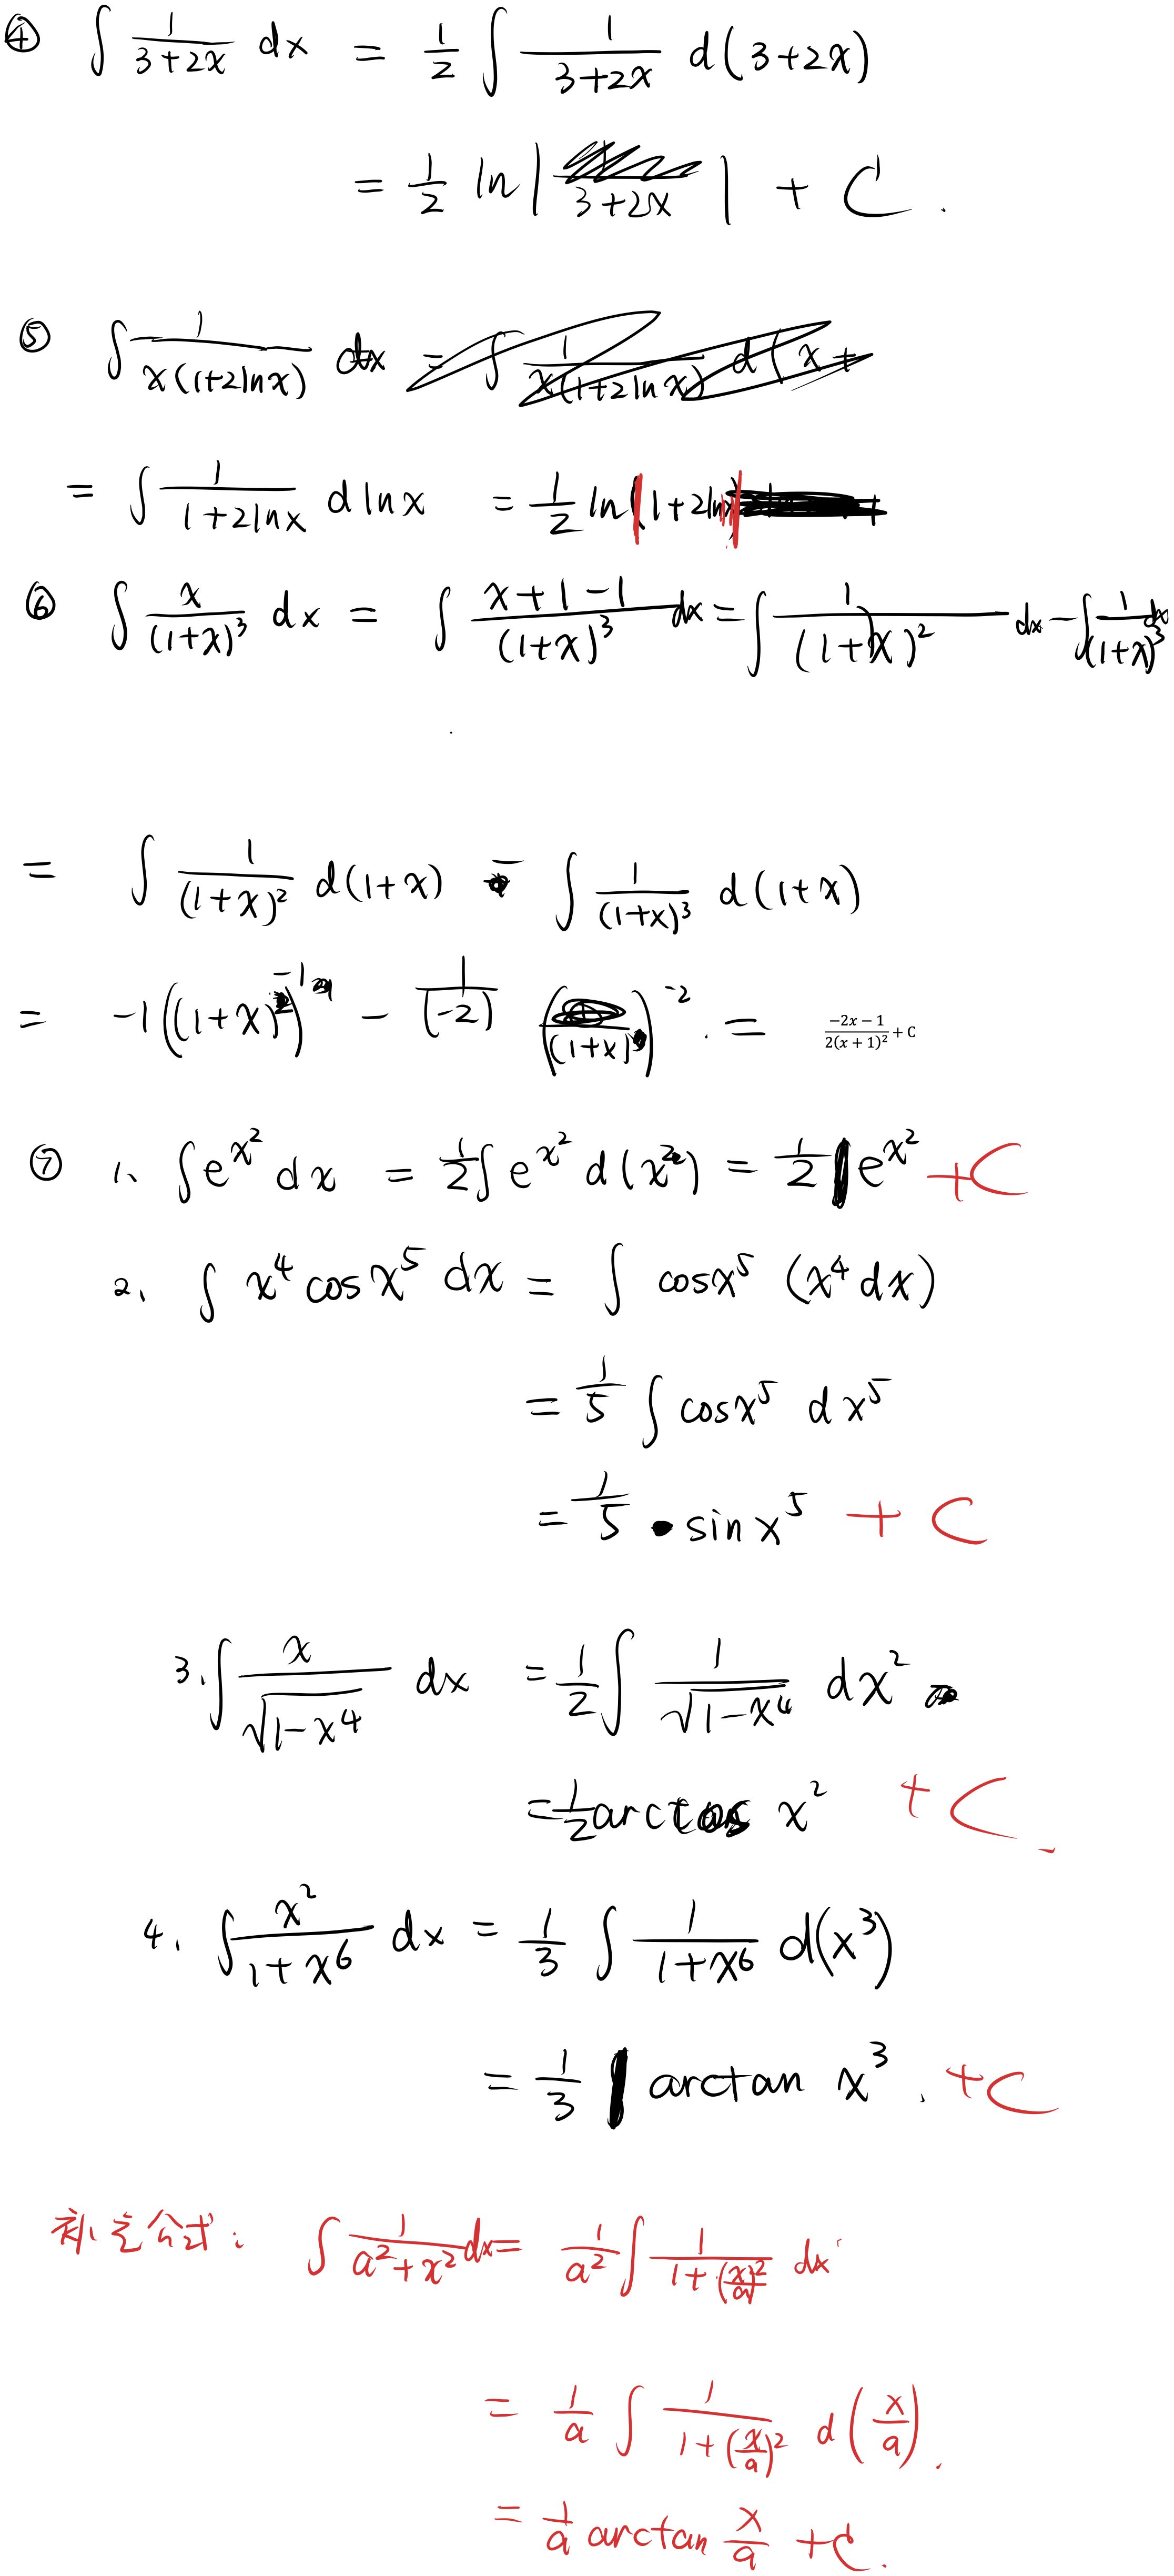 ④ ∫ 1/(3+2x) dx = 1/2 ∫ 1/(3+2x) d(3+2x)
= 1/2 ln|3+2x| + C.
⑤ ∫ 1/(x(1+2lnx)) dx = ∫ 1/(x(1+2lnx)) d(x+
= ∫ 1/(1+2lnx) d lnx = 1/2 ln|1+2lnx|
⑥ ∫ x/(1+x)³ dx = ∫ (x+1-1)/(1+x)³ dx = ∫ 1/(1+x)² dx - ∫ 1/(1+x)³ dx
= ∫ 1/(1+x)² d(1+x) - ∫ 1/(1+x)³ d(1+x)
= -1((1+x)⁻¹) - 1/(-2) (1+x)⁻². = (-2x-1)/(2(x+1)²) + C
⑦ 1、 ∫e^x² dx = 1/2 ∫ e^x² d(x²) = 1/2 e^x² + C
2、 ∫ x⁴cosx⁵ dx = ∫ cosx⁵ (x⁴dx)
= 1/5 ∫ cosx⁵ dx⁵
= 1/5 • sinx⁵ + C
3、 ∫ x/√(1-x⁴) dx = 1/2 ∫ 1/√(1-x⁴) dx²
= 1/2 x² + C
4、 ∫ x²/(1+x⁶) dx = 1/3 ∫ 1/(1+x⁶) d(x³)
= 1/3 arctan x³. + C
补充公式: ∫ 1/(a²+x²) dx = 1/a² ∫ 1/(1+(x/a)²) dx
= 1/a ∫ 1/(1+(x/a)²) d(x/a).
= 1/a arctan x/a + C.